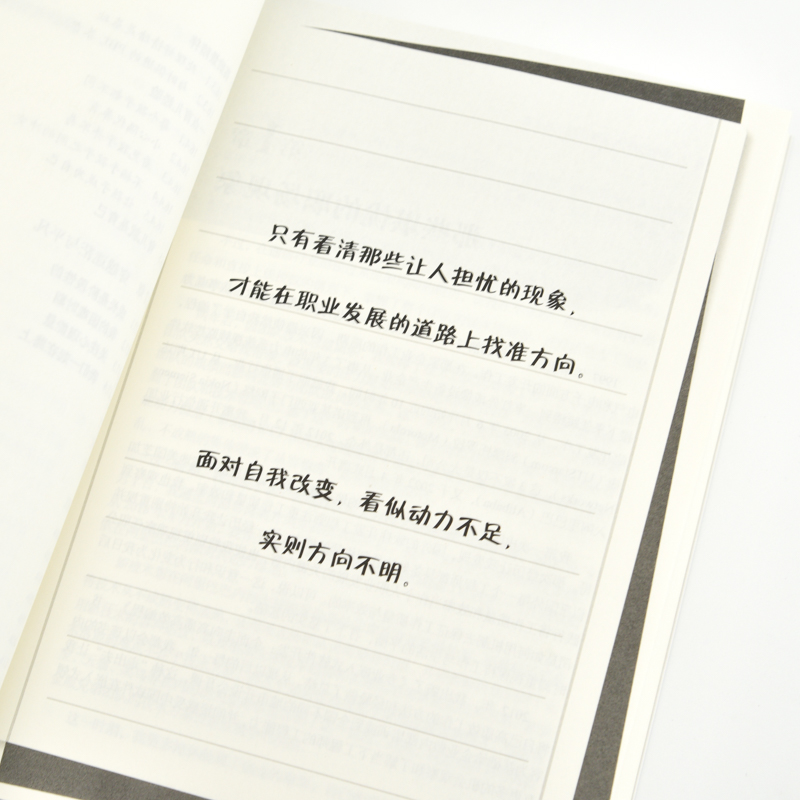 只有看清那些让人担忧的现象，
才能在职业发展的道路上找准方向。
面对自我改变，看似动力不足，
实则方向不明。